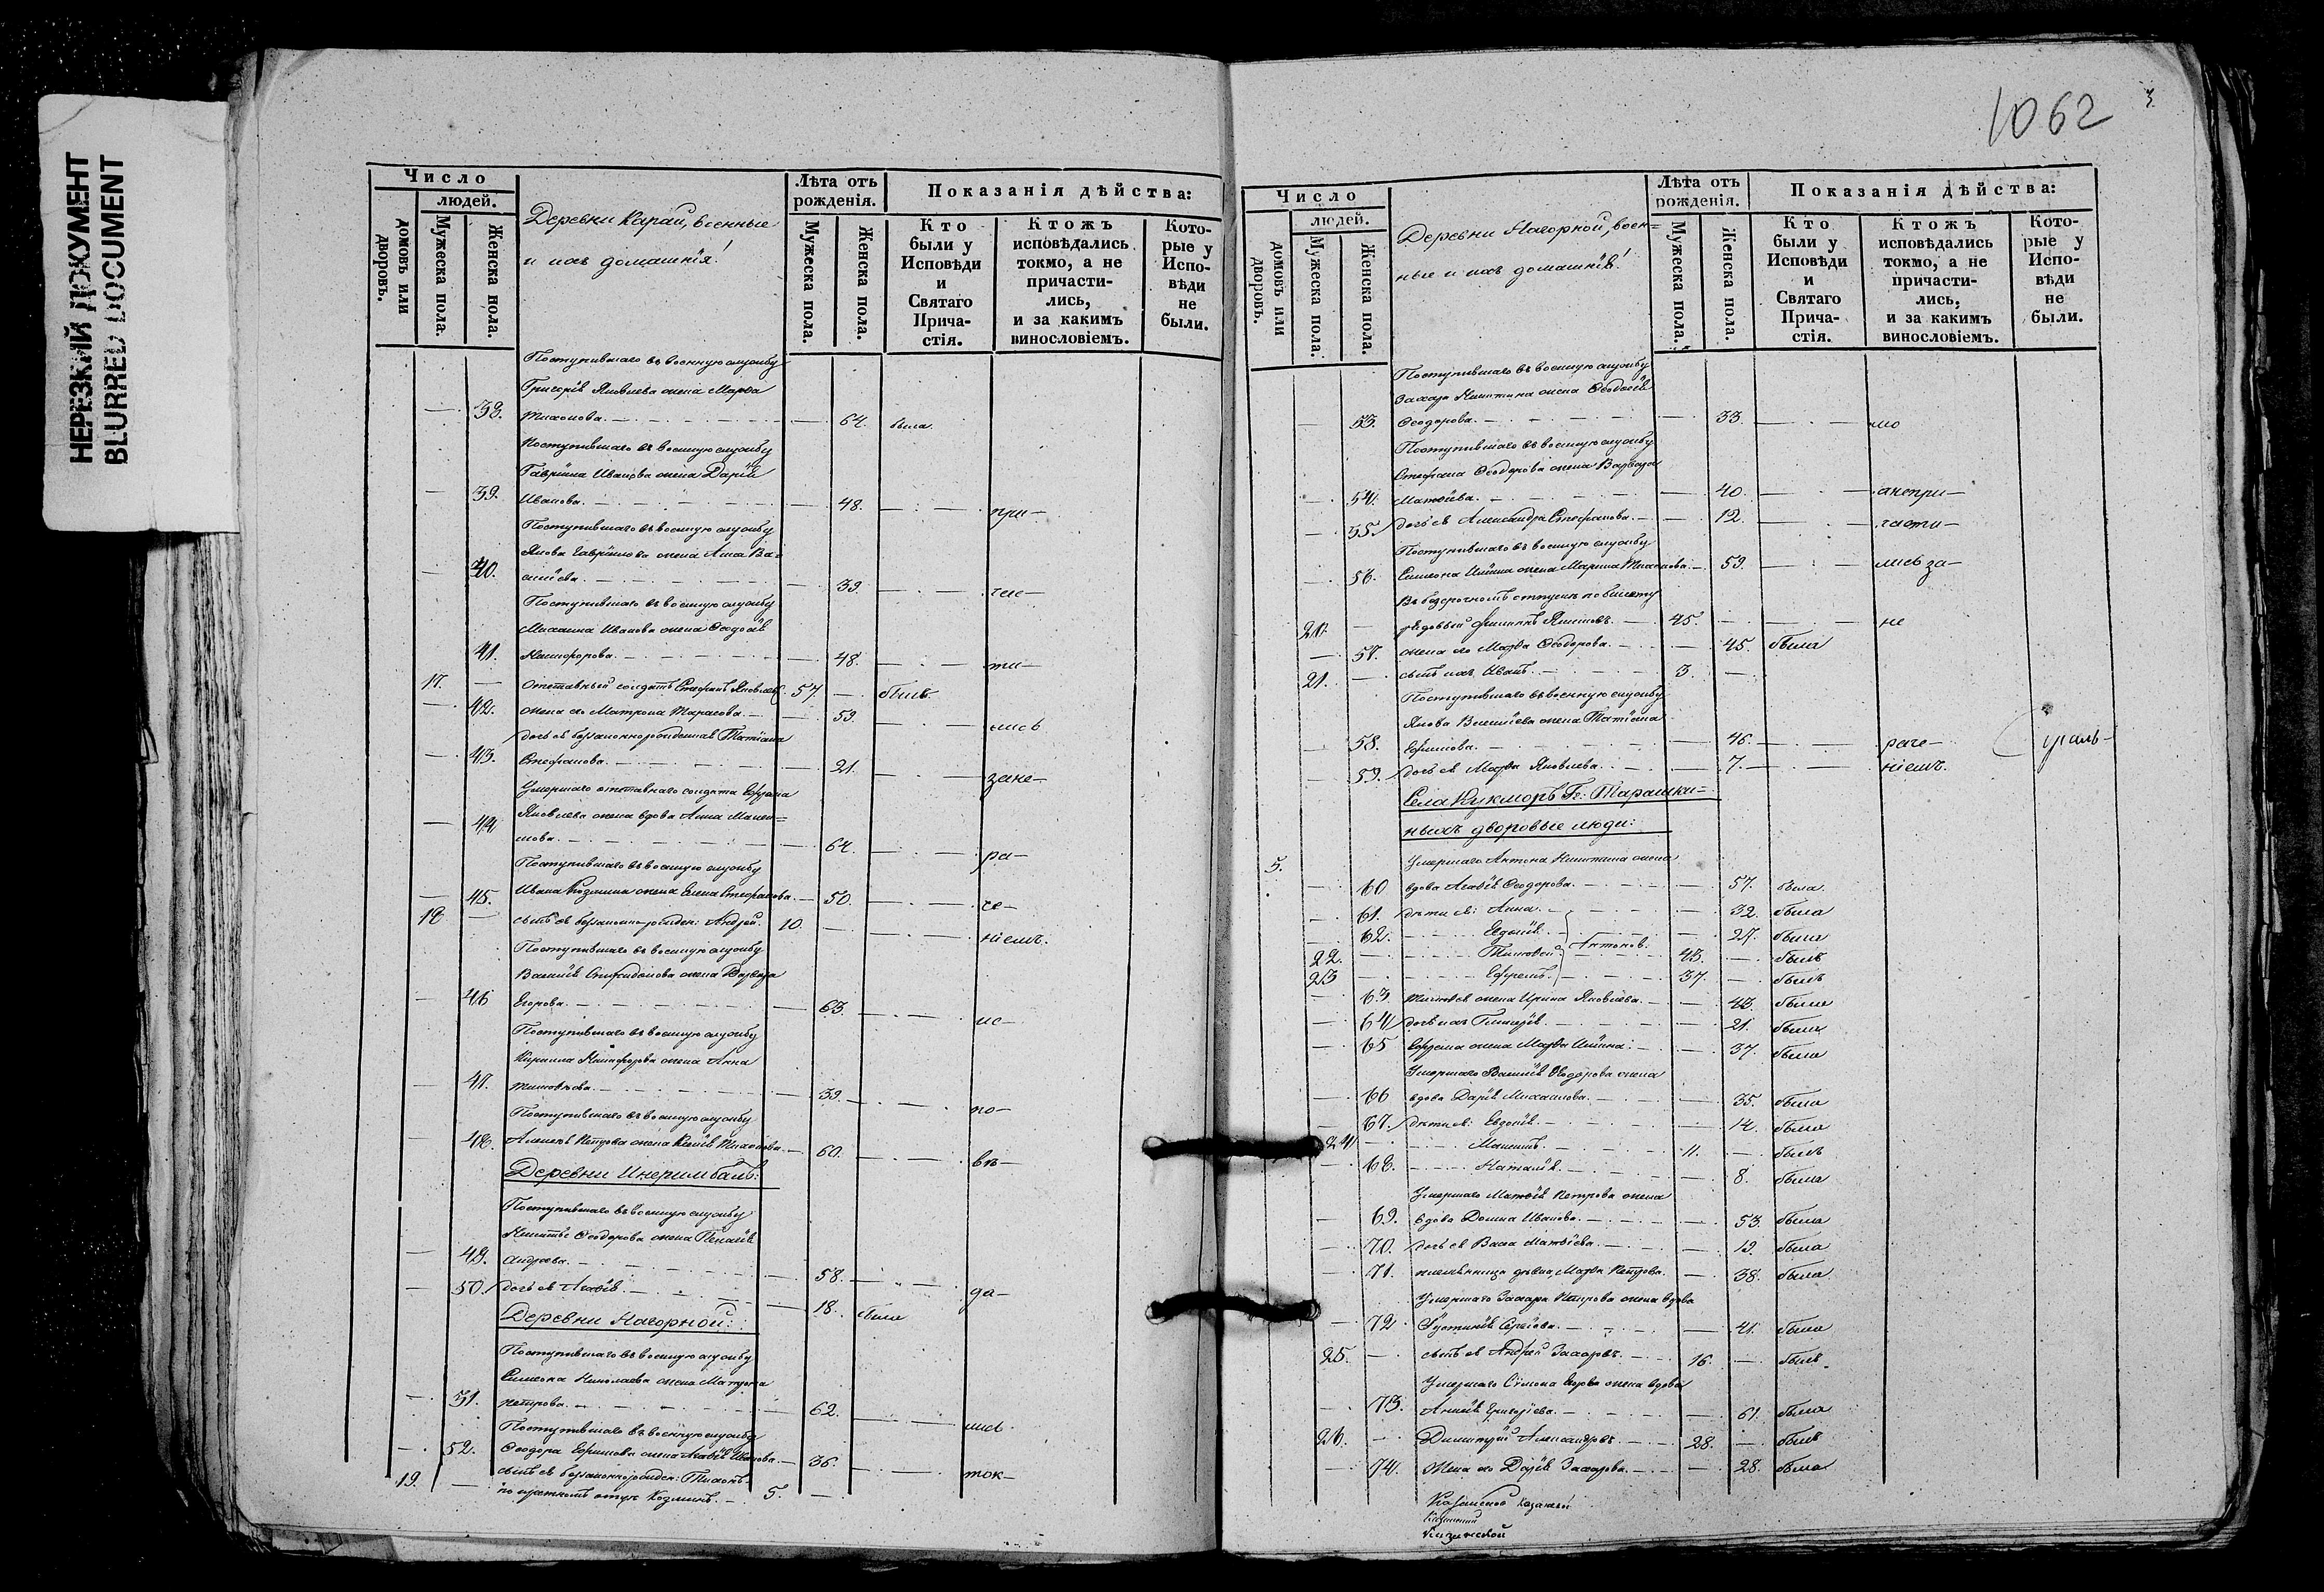 НЕРЕЗКИЙ ДОКУМЕНТ
BLURRED DOCUMENT
Число
людей.
домовъ или дворовъ.
Мужеска пола.
Женска пола.
Деревни Карай, военные
и ихъ домашнія:
Лѣта отъ рожденія.
Мужеска пола.
Женска пола.
Показанія дѣйства:
Кто были у Исповѣди и Святаго Прича-стія.
Ктожъ исповѣдались токмо, а не причасти-лись, и за какимъ винословіемъ.
Кото-рые у Испо-вѣди не были.
Поступившаго въ военную службу
Григорія Яковлева жена Марѳа
— 38. Тихонова. — 64. была
Поступившаго въ военную службу
Гавріила Иванова жена Дарія
— 39. Иванова. — 48. — при—
Поступившаго въ военную службу
Якова Гавріилова жена Анна Ва-
— 40. силіева. — 39. —
Поступившаго въ военную службу
Михаила Иванова жена Ѳеодосія
41. Никифорова. — 48. — ти—
17. — Отставный солдатъ Стефанъ Яковлевъ. 57. — былъ
— 42. жена его Матрона Тарасова. — 59. — лись
дочь ея беззаконнорожденная Татіана
— 43. Стефанова. — 21. — зане—
Умершаго отставнаго солдата Ефрема
Яковлева жена вдова Анна Макси-
— 44. мова. — 64. — ра—
Поступившаго въ военную службу
— 45. Ивана Козмина жена Елена Стефанова. — 50. — че—
18 — сынъ ея беззаконнорожден: Андрей. 10. — ніемъ.
Поступившаго въ военную службу
Василія Спиридонова жена Варвара
— 46 Егорова. — 63. — ис—
Поступившаго въ военную службу
Кирилла Никифорова жена Анна
— 47. Тимоѳеева. — 39. — по—
Поступившаго въ военную службу
— 48. Алексѣя Петрова жена Ксенія Тихонова. — 60. — вѣ—
Деревни
Поступившаго въ военную службу
Никиты Ѳеодорова жена Пелагія
— 49. Андреева. — 58. — да—
— 50. дочь ея Агаѳія. — 18. была
Деревни Нагорной:
Поступившаго въ военную службу
Симеона Николаева жена Матрона
— 51. Петрова. — 62. — лись
Поступившаго въ военную службу
— 52. Ѳеодора Ефимова жена Агаѳія Иванова. — 36. — ток—
19. — сынъ ея беззаконнорожден: Тихонъ
Козминъ. — 5. —
1062
3
Число
людей.
домовъ или дворовъ.
Мужеска пола.
Женска пола.
Деревни Нагорной, воен-
ные и ихъ домашнія:
Лѣта отъ рожденія.
Мужеска пола.
Женска пола.
Показанія дѣйства:
Кто были у Исповѣди и Святаго Прича-стія.
Ктожъ исповѣдались токмо, а не причасти-лись, и за какимъ винословіемъ.
Кото-рые у Испо-вѣди не были.
Поступившаго въ военную службу
Захара Никитина жена Ѳеодосія
— 53. Ѳеодорова. — 33. — мо
Поступившаго въ военную службу
Стефана Ѳеодорова жена Варвара
— 54. Матѳіева. — 40. — анепри—
— 55. дочь ея Александра Стефанова. — 12. — части—
Поступившаго въ военную службу
— 56. Симеона Ильина жена Марина Тихонова. — 59. — лись за—
Въ безсрочномъ отпуску по билету
20. — рядовый Филиппъ — 45. — не
— 57. жена его Марѳа Ѳеодорова. — 45. была
21. — сынъ ихъ Иванъ. — 3. —
Поступившаго въ военную службу
Якова Василіева жена Татіана
— 58. Ефимова. — 46. — раче—
— 59. дочь ея Марѳа Яковлева. — 7. — ніемъ.
Села Кукморъ Гг: Тарашки-
ныхъ дворовые люди:
5. Умершаго Антона Никитина жена
— 60 вдова Агаѳія Ѳеодорова. — 57. была.
— 61. дѣти ея: Анна. — 32. была
— 62. Евдокія. — 27. была
22. — Тимоѳей. Антонов. 43. — былъ
23 — Ефремъ. — 37. — былъ
— 63. Тимоѳея жена Ирина Яковлева. — 43. была
— 64. дочь ихъ Гликерія. — 21. была
— 65 Ефрема жена Марѳа Ильина. — 37. была
Умершаго Василія Ѳеодорова жена
— 66 вдова Дарія Михаилова. — 35. была
— 67. дѣти ея: Евдокія. — 14. была
24 — Максимъ. — 11. — былъ
— 68. Наталія. — 8. была
Умершаго Матѳія Петрова жена
— 69. вдова Домна Иванова. — 53. была
— 70. дочь ея Васса Матѳіева. — 19. была
— 71. племянница дѣвка Марѳа Петрова. — 38. была
Умершаго Захара Петрова жена вдова
— 72 Іустинія Сергіева. — 41. была
25. — сынъ ея Андрей Захаровъ. — 16. — былъ.
Умершаго Симона Егорова жена вдова
— 73. Григоріева. — 61. была
26. — Димитрій Александровъ. — 28. — былъ
— 74. Жена его Дарія Захарова. — 28. была